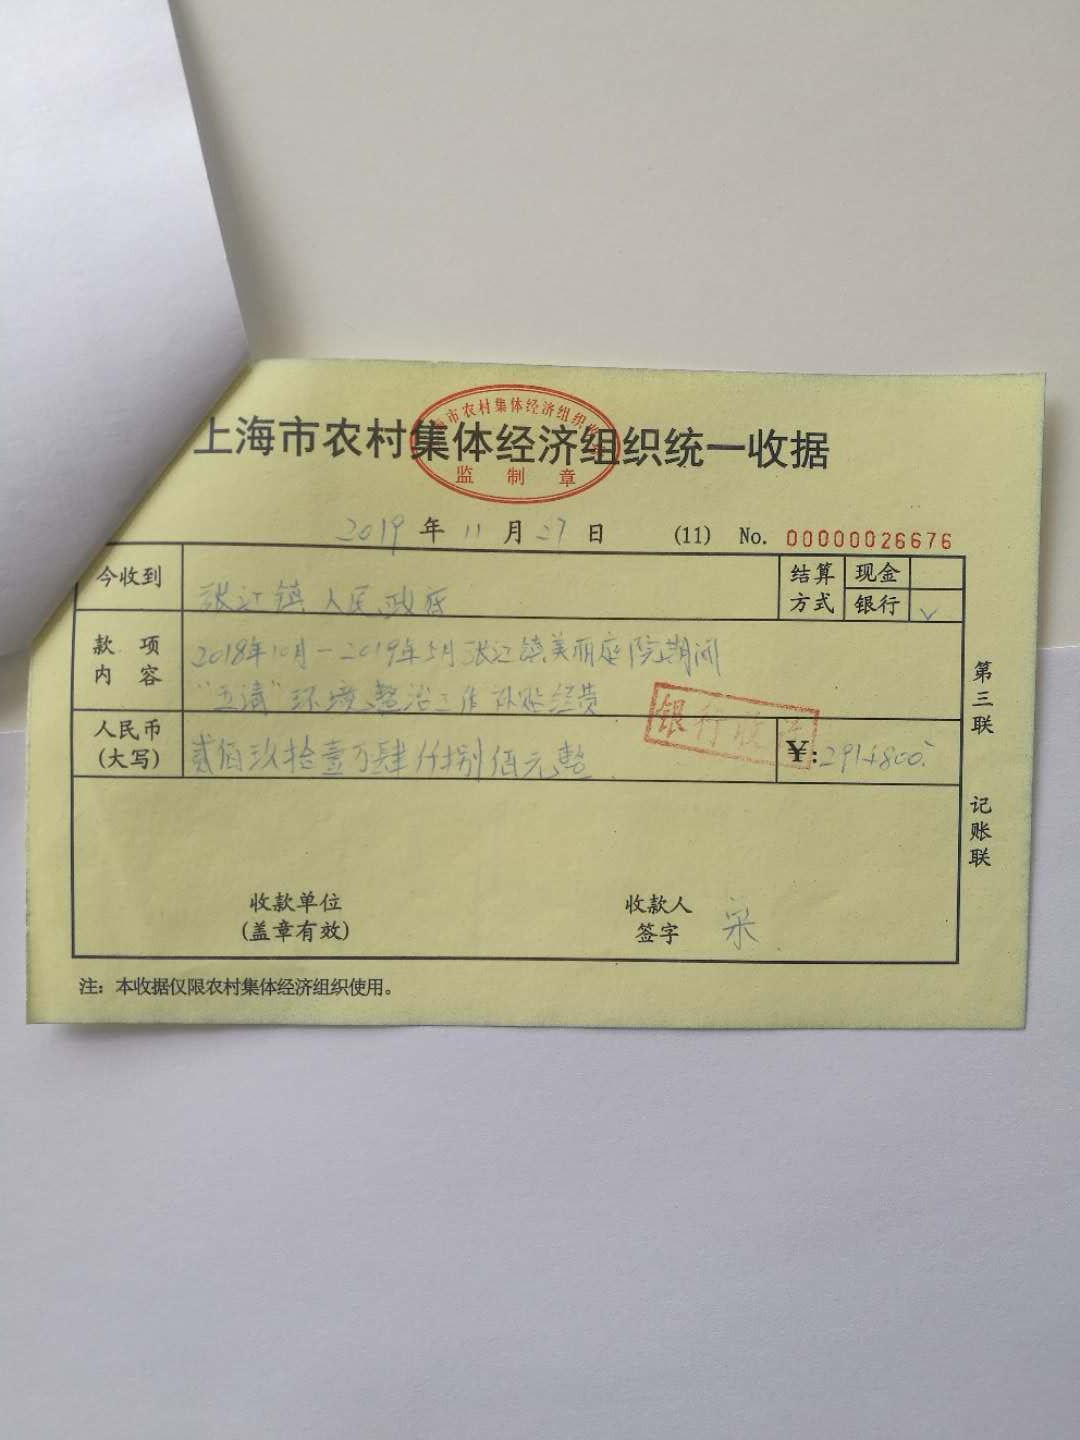 上海市农村集体经济组织统一收据
海市农村集体经济组织收
监制章
2019年11月27日 (11) No. 00000026676
今收到 张江镇人民政府
结算方式 现金
银行 √
款项内容 2018年10月-2019年5月张江镇美丽庭院期间
"五清"环境整治工作补贴经费
银行收
人民币(大写) 贰佰玖拾壹万肆仟捌佰元整 ¥:2914800.
第三联
记账联
收款单位
(盖章有效)
收款人
签字 宋
注：本收据仅限农村集体经济组织使用。